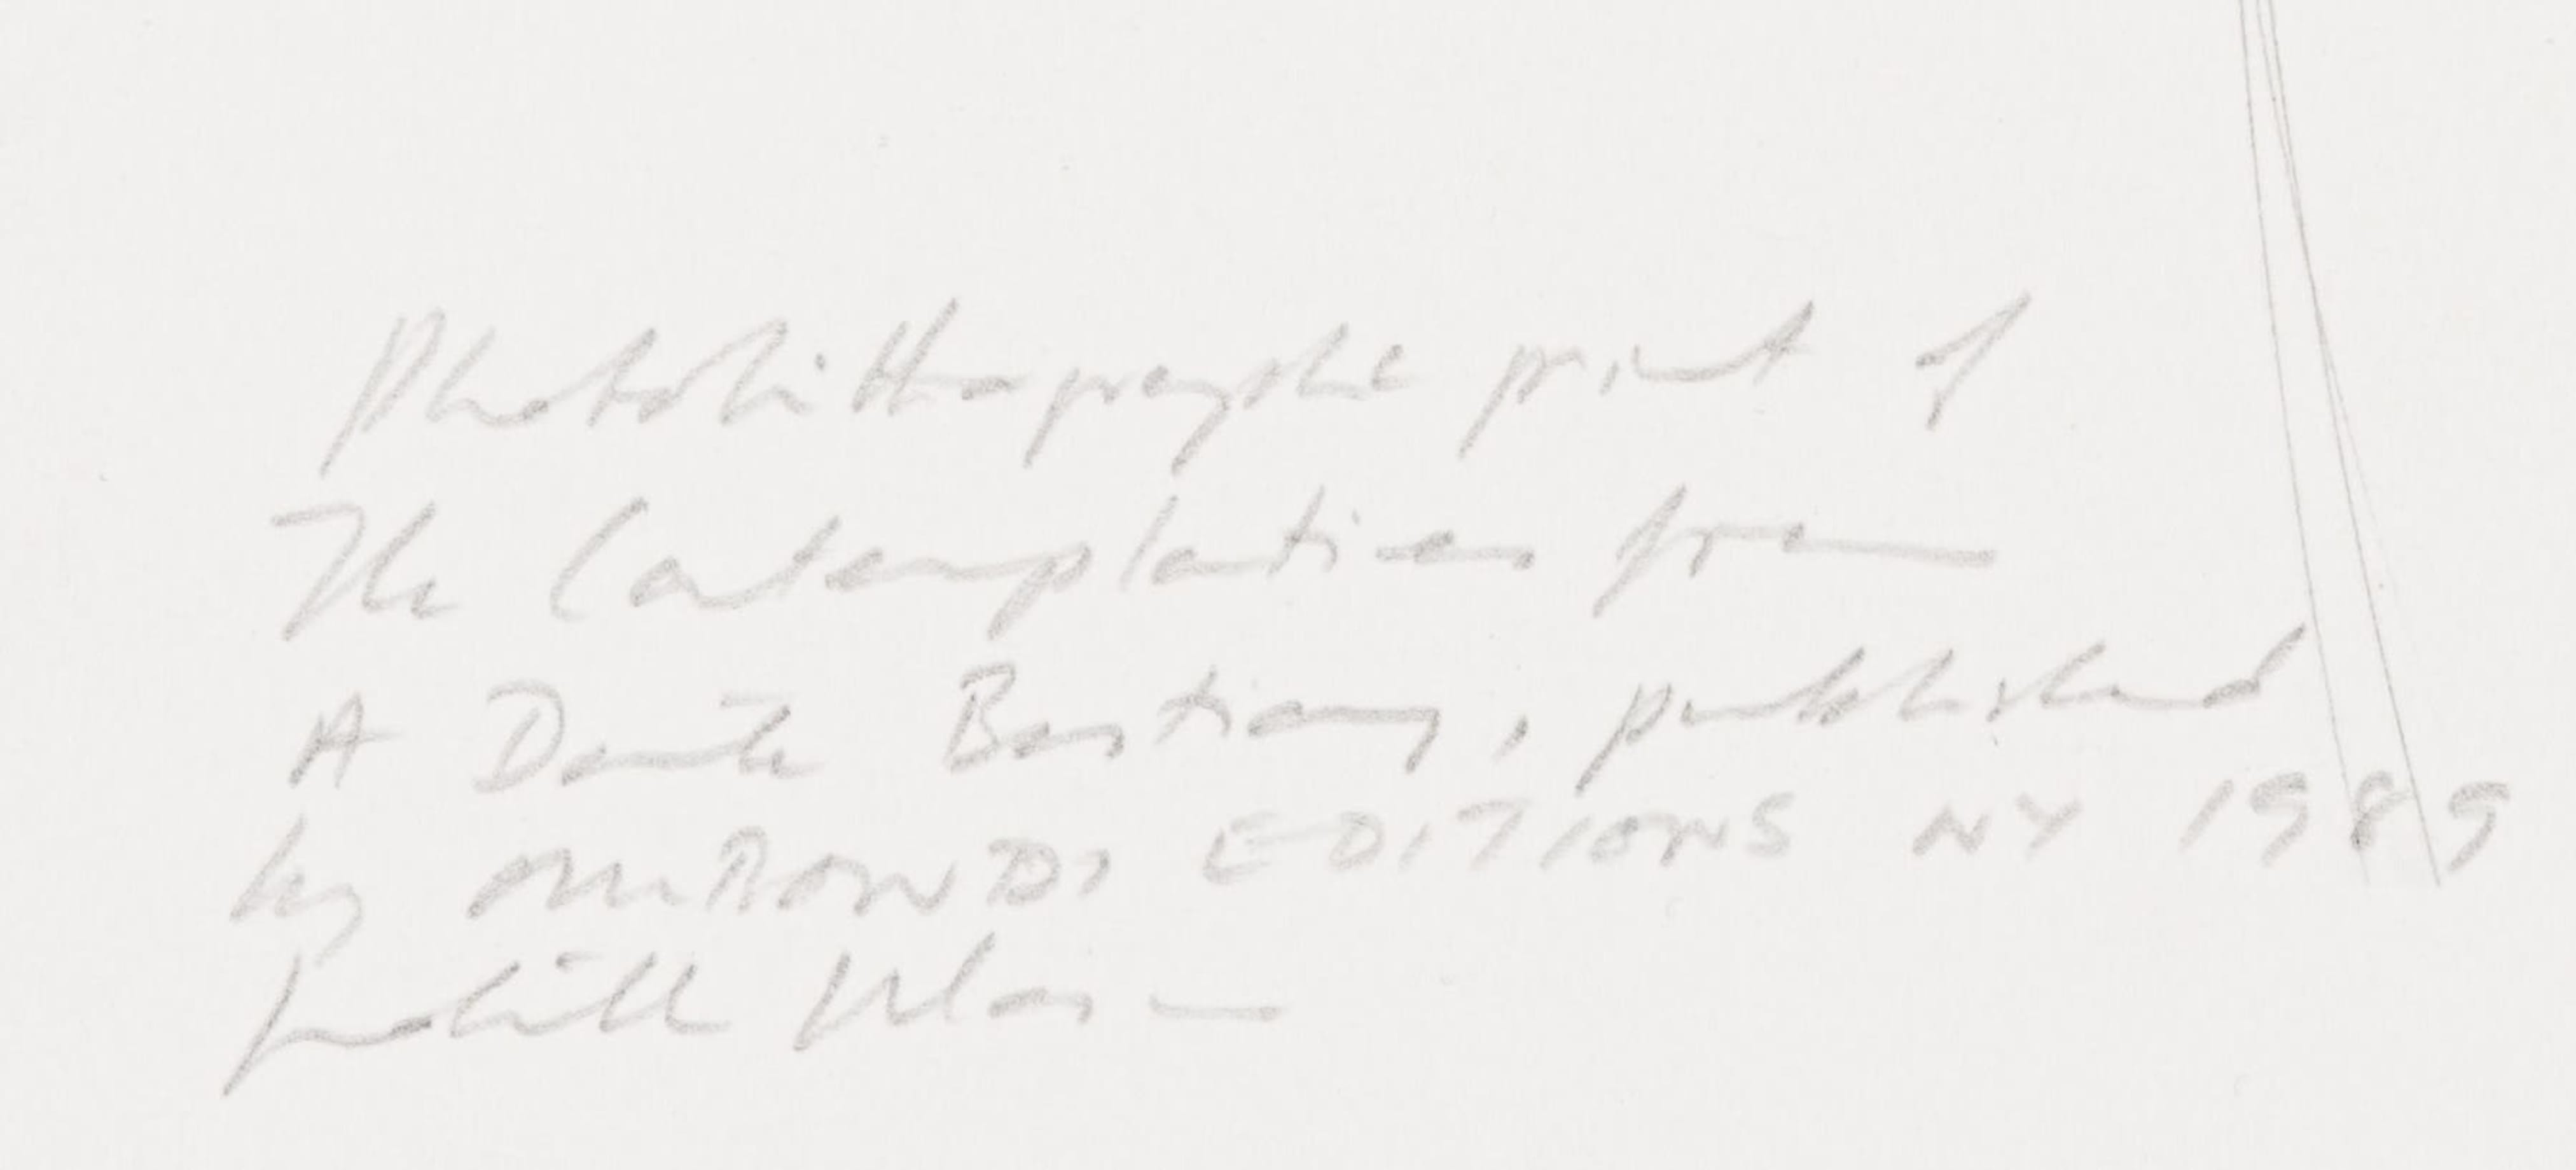 Photolithographic print of
The Contemplatives from
A Dante Bestiary, published
by OMBONDI EDITIONS NY 1989
Judith